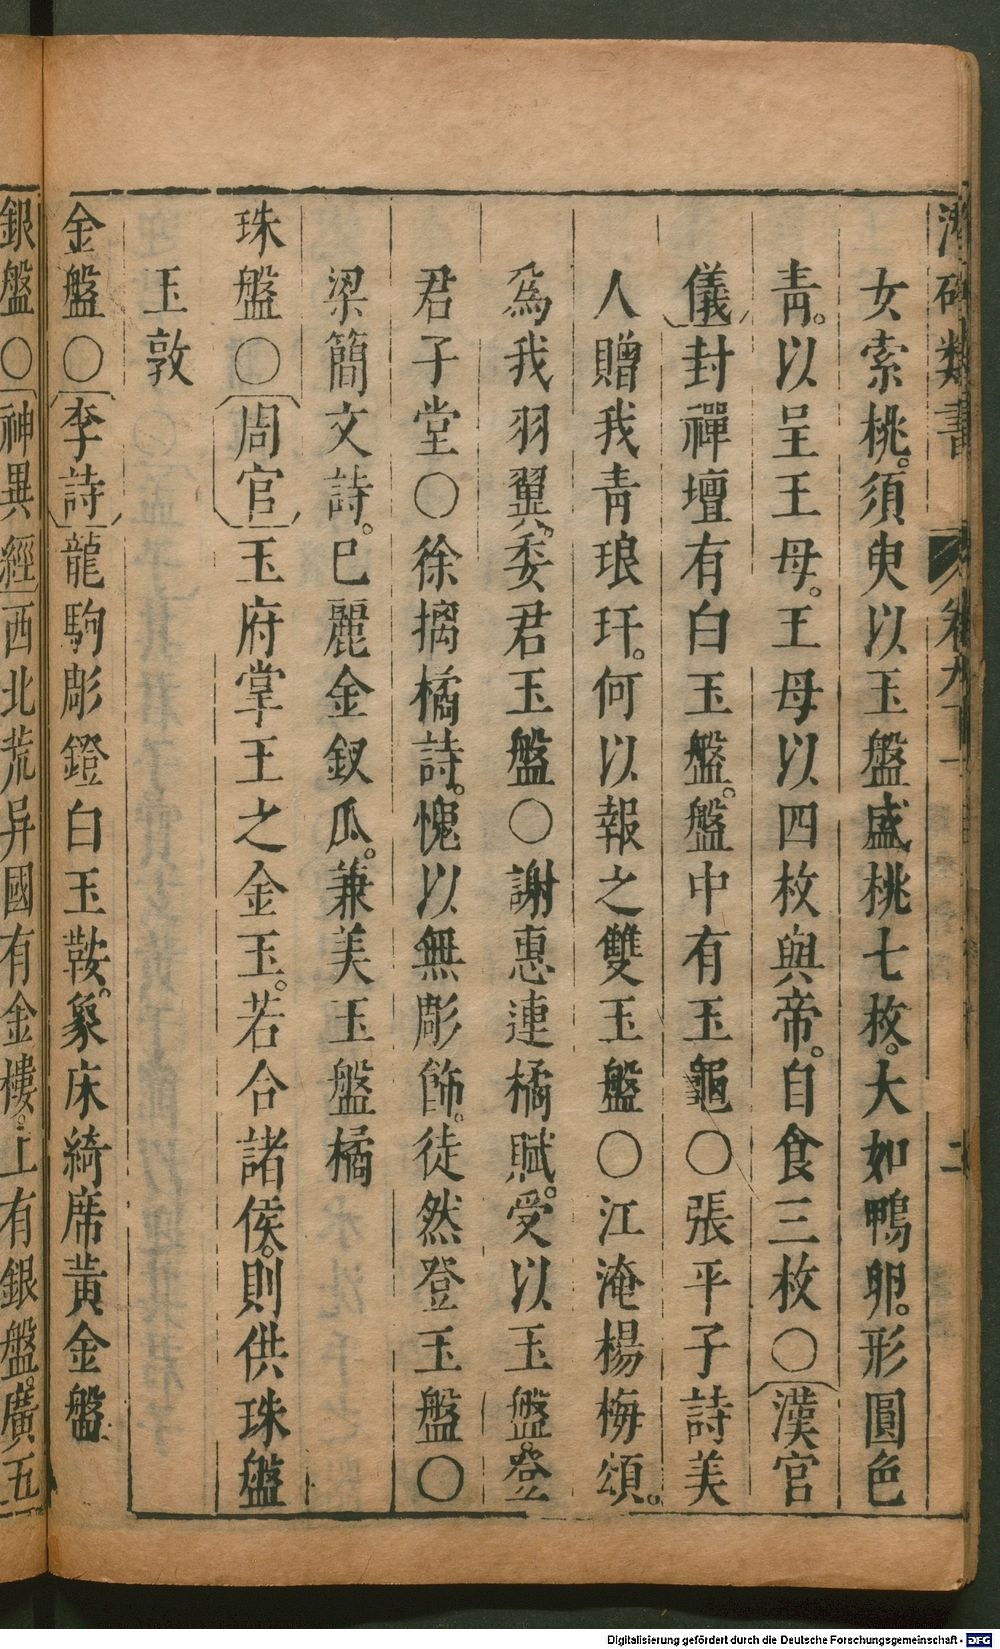 類書 卷九下 二
女索桃。須臾以玉盤盛桃七枚。大如鴨卵。形圓色
青。以呈王母。王母以四枚與帝。自食三枚〇漢官
儀封禪壇有白玉盤。盤中有玉龜〇張平子詩美
人贈我青琅玕。何以報之雙玉盤〇江淹楊梅頌。
爲我羽翼。委君玉盤〇謝惠連橘賦。受以玉盤。登
君子堂〇徐摛橘詩。愧以無彫飾。徒然登玉盤〇
梁簡文詩。巳麗金釵瓜。兼美玉盤橘
珠盤〇周官玉府掌王之金玉。若合諸侯。則供珠盤
玉敦
金盤〇李詩龍駒彫鐙白玉鞍。象床綺席黃金盤
銀盤〇神異經西北荒井國有金樓。上有銀盤。廣五
Digitalisierung gefördert durch die Deutsche Forschungsgemeinschaft - DFG